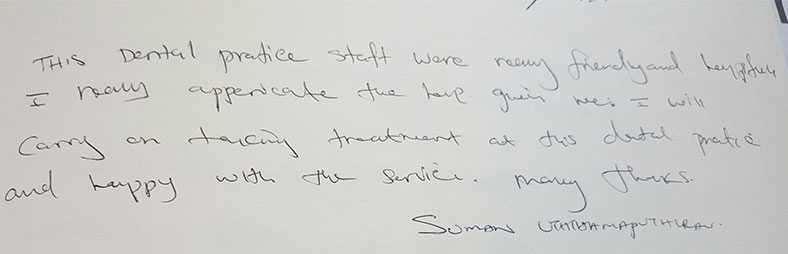 THIS Dental pratice staff were really friendly and
I really appericate the help given me. I will
Carry on taking treatment at this dental pratice
and happy with the service. many thanks.
SUMAN